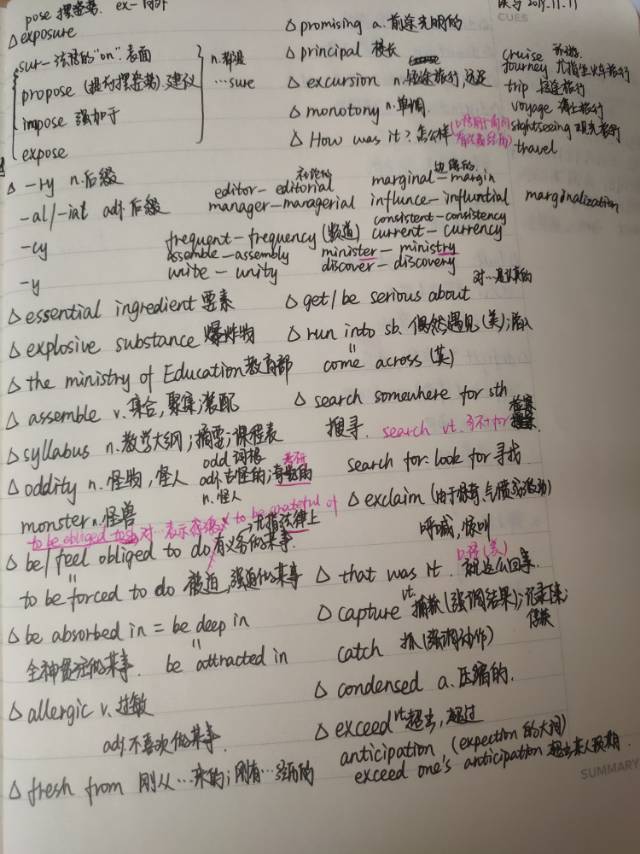 pose 摆姿势. ex-向外
2019.11.11
CUES
△ exposure
sur-法语的"on".表面
propose (提前摆姿势)建议
impose 强加于
expose
n.都是
…sure
△ promising a.前途光明的
△ principal 校长
△ excursion n.短途旅行,远足
△ monotony n.单调.
△ How was it? 怎么样
cruise
journey 尤指坐火车旅行
trip 短途旅行
voyage 海上旅行
sightseeing 观光旅行
travel
△ -ry n.后缀
editor- editorial
marginal-margin
-al/-ial adj.后缀
manager-managerial influnce-influntial marginalization
consistent-consistency
-cy
frequent-frequency(频道) current-currency
assemble-assembly minister-ministry
-y
unite-unity discover-discovery
△ essential ingredient 要素
△ explosive substance 爆炸物
△ the ministry of Education 教育部
△ assemble v.集合,聚集;装配
△ syllabus n.教学大纲;摘要;课程表
odd 词根
△ oddity n.怪物,怪人 adj.古怪的;奇数的
n.怪人
monster n.怪兽
to be grateful of
△ be/feel obliged to do 有义务做某事.
to be forced to do 被迫,强迫做某事
△ be absorbed in = be deep in
全神贯注做某事. be attracted in
△ allergic v.过敏
adj.不喜欢做某事.
△ fresh from 刚从…来的;刚有…经历的
△ get/be serious about
对…是认真的
△ run into sb. 偶然遇见(美);
come across (英)
△ search somewhere for sth
搜寻. search vt.
search for: look for 寻找
△ exclaim
呼喊,惊叫
△ that was it. 就这么回事.
口语(美)
△ capture vt. 捕获(强调结果);记录下来;
俘获
catch 抓(强调动作)
△ condensed a.压缩的.
△ exceed vt.超出,超过
anticipation (expection 的大词)
exceed one's anticipation 超出某人预期.
SUMMARY